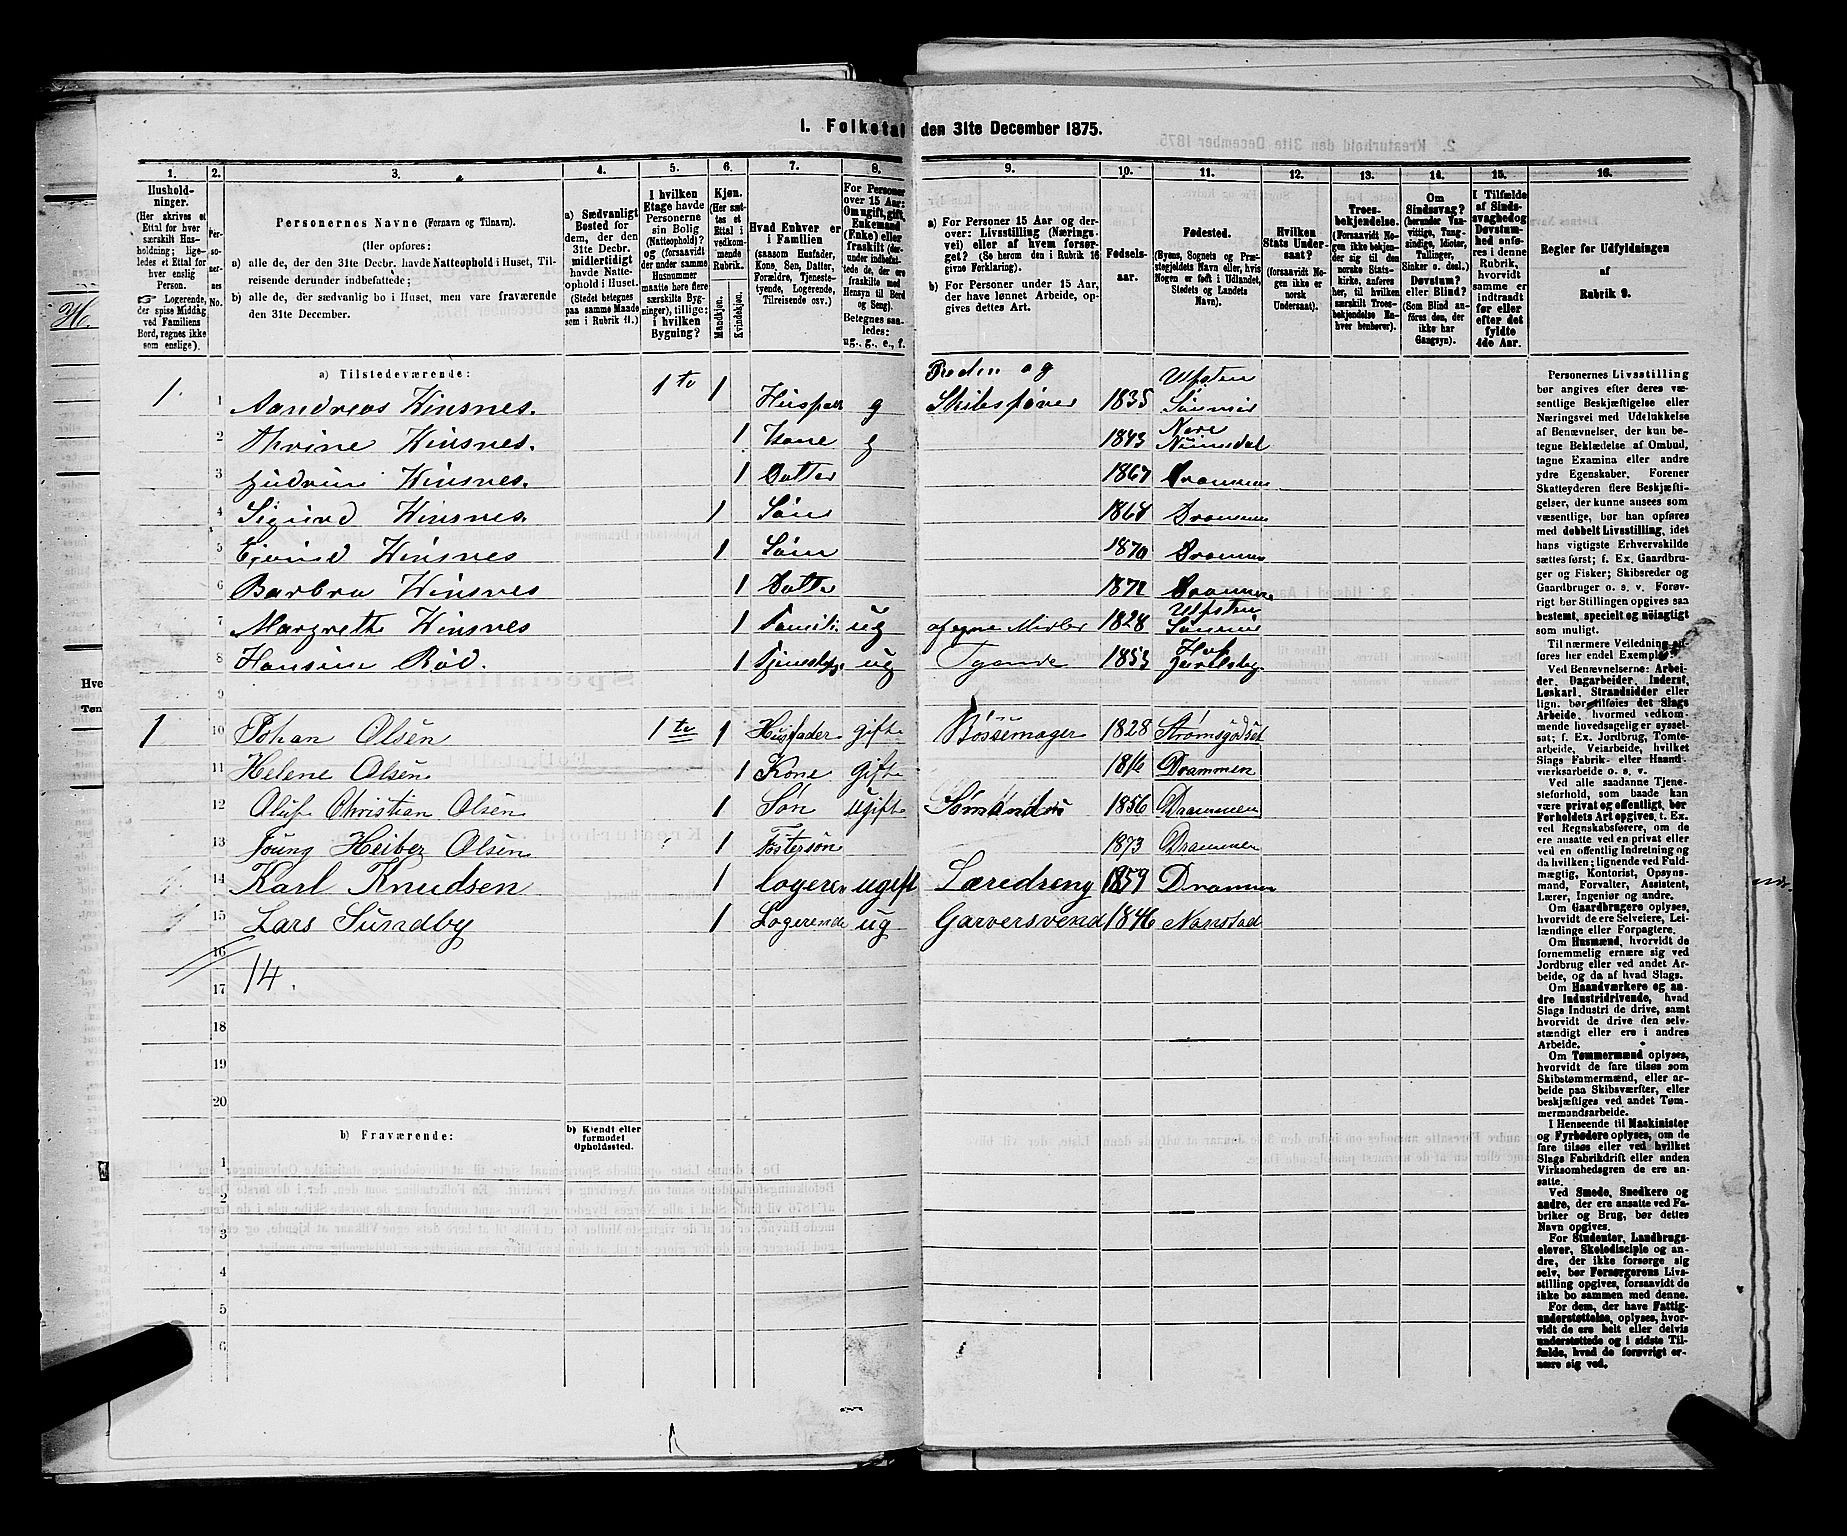 1. Folketal den 31te December 1875.
1. 2. 3. 4. 5. 6. 7. 8. 9. 10. 11. 12. 13. 14. 15. 16.
Husholdninger.
(Her skrives et Ettal for hver særskilt Husholdning; ligeledes et Ettal for hver enslig Person.
☞ Logerende, der spise Middag ved Familiens Bord, regnes ikke som enslige).
Personernes No.
Personernes Navne (Fornavn og Tilnavn).
(Her opføres:
a) alle de, der den 31te Decbr. havde Natteophold i Huset, Tilreisende derunder indbefattede;
b) alle de, der sædvanlig bo i Huset, men vare fraværende den 31te December.
a) Sædvanligt Bosted for dem, der den 31te Decbr. midlertidigt havde Natteophold i Huset.
(Stedet betegnes paa samme Maade som i Rubrik 11.)
I hvilken Etage havde Personerne sin Bolig (Natteophold)? og (forsaavidt der under samme Husnummer maatte høre flere særskilte Bygninger), tillige: i hvilken Bygning?
Kjøn. (Her sættes et Ettal i vedkommende Rubrik.
Mandkjøn. Kvindekjøn.
Hvad Enhver er i Familien
(saasom Husfader, Kone, Søn, Datter, Forældre, Tjenestetyende, Logerende, Tilreisende osv.)
For Personer over 15 Aar: Om ugift, gift, Enkemand (Enke) eller fraskilt (derunder indbefattede de, der ere fraskilte med Hensyn til Bord og Seng).
Betegnes saaledes: ug., g., e., f.
a) For Personer 15 Aar og derover: Livsstilling (Næringsvei) eller af hvem forsørget? (Se herom den i Rubrik 16 givne Forklaring).
b) For Personer under 15 Aar, der have lønnet Arbeide, opgives dettes Art.
Fødselsaar.
Fødested.
(Byens, Sognets og Præstegjeldets Navn eller, hvis Nogen er født i Udlandet, Stedets og Landets Navn).
Hvilken Stats Undersaat?
(forsaavidt Nogen ikke er norsk Undersaat).
Troesbekjendelse.
(Forsaavidt Nogen ikke bekjender sig til den norske Statskirke, anføres her, til hvilken særskilt Troesbekjendelse Enhver henhører).
Om Sindssvag? (herunder Vanvittige, Tungsindige, Idioter, Tullinger, Sinker o. desl.) Døvstum? eller Blind? (Som Blind anføres den, der ikke har Gangsyn).
I Tilfælde af Sindssvaghed og Døvstumhed anføres i denne Rubrik, hvorvidt samme er indtraadt før eller efter det fyldte 4de Aar.
Regler for Udfyldningen
af
Rubrik 9.
a) Tilstedeværende:
1. 1 Aandreas Hinsnes. 1 te 1 Husfader g Reder og Skibsfører 1835 Ulfsten Søndmør
2 Hinsnes. 1 Kone g 1843 Nore Numedal
3 Gudrun Hinsnes. 1 Datter 1867 Drammen
4 Sigurd Hinsnes. 1 Søn Drammen
5 Eivind Hinsnes 1 Søn 1870 Drammen
6 Barbra Hinsnes 1 Datter 1872 Drammen
7 Margrethe Hinsnes 1 Famili ug af egne Midler 1828 Ulfsten Søndmør
8 Hansine Rød. 1 ug 1853 Jarlsberg
9
1 10 Johan Olsen 1 te 1 Husfader Gift Bøssemager 1828 Strømsgodset
11 Helene Olsen 1 Kone Gift Drammen
12 Oluf Christian Olsen 1 Søn Ugift Sømand 1856 Drammen
13 Heiber Olsen 1 Fostersøn 1873 Drammen
14 Karl Knudsen 1 logerende ugift Læredreng 1859 Drammen
1 15 Lars Sundby 1 Logerende ug Garversvend 1846 Nanstad
16
17 14.
18
19
20
b) Fraværende:
b) Kjendt eller formodet Opholdssted.
1
2
3
4
5
6
Personernes Livsstilling bør angives efter deres væsentlige Beskjæftigelse eller Næringsvei med Udelukkelse af Benævnelser, der kun betegne Beklædelse af Ombud, tagne Examina eller andre ydre Egenskaber. Forener Skatteyderen flere Beskjæftigelser, der kunne ansees som væsentlige, bør han opføres med dobbelt Livsstilling, idet hans vigtigste Erhvervskilde sættes først; f. Ex. Gaardbruger og Fisker; Skibsreder og Gaardbruger o. s. v. Forøvrigt bør Stillingen opgives saa bestemt, specielt og nøiagtigt som muligt.
Til nærmere Veiledning anføres her endel Exempler:
Ved Benævnelserne: Arbeider, Dagarbeider, Inderst, Løskarl, Strandsidder eller lign. bør tilføies det Slags Arbeide, hvormed vedkommende hovedsagelig er sysselsat; f. Ex. Jordbrug, Tomtearbeide, Veiarbeide, hvilket Slags Fabrik- eller Haandværksarbeide o. s. v.
Ved alle saadanne Tjenesteforhold, som baade kan være privat og offentligt, bør Forholdets Art opgives, t. Ex. ved Regnskabsførere, om de ere ansatte ved en privat eller ved en offentlig Indretning og da hvilken; lignende ved Fuldmægtig, Kontorist, Opsynsmand, Forvalter, Assistent, Lærer, Ingeniør og andre.
Om Gaardbrugere oplyses, hvorvidt de ere Selveiere, Leilændinge eller Forpagtere.
Om Husmænd, hvorvidt de fornemmelig ernære sig ved Jordbrug eller ved andet Arbeide, og da af hvad Slags.
Om Haandværkere og andre Industridrivende, hvad Slags Industri de drive, samt hvorvidt de drive den selvstændigt eller ere i andres Arbeide.
Om Tømmermænd oplyses, hvorvidt de fare tilsøs som Skibstømmermænd, eller arbeide paa Skibsværfter, eller beskjæftiges ved andet Tømmermandsarbeide.
I Henseende til Maskinister og Fyrbødere oplyses, om de fare tilsøs eller ved hvilket Slags Fabrikdrift eller anden Virksomhedsgren de ere ansatte.
Ved Smede, Snedkere og andre, der ere ansatte ved Fabriker og Brug, bør dettes Navn opgives.
For Studenter, Landbrugselever, Skoledisciple og andre, der ikke forsørge sig selv, bør Forsørgerens Livsstilling opgives, forsaavidt de ikke bo sammen med denne.
For dem, der have Fattigunderstøttelse, oplyses, hvorvidt de ere helt eller delvis understøttede og i sidste Tilfælde, hvad de forøvrigt ernære sig ved.